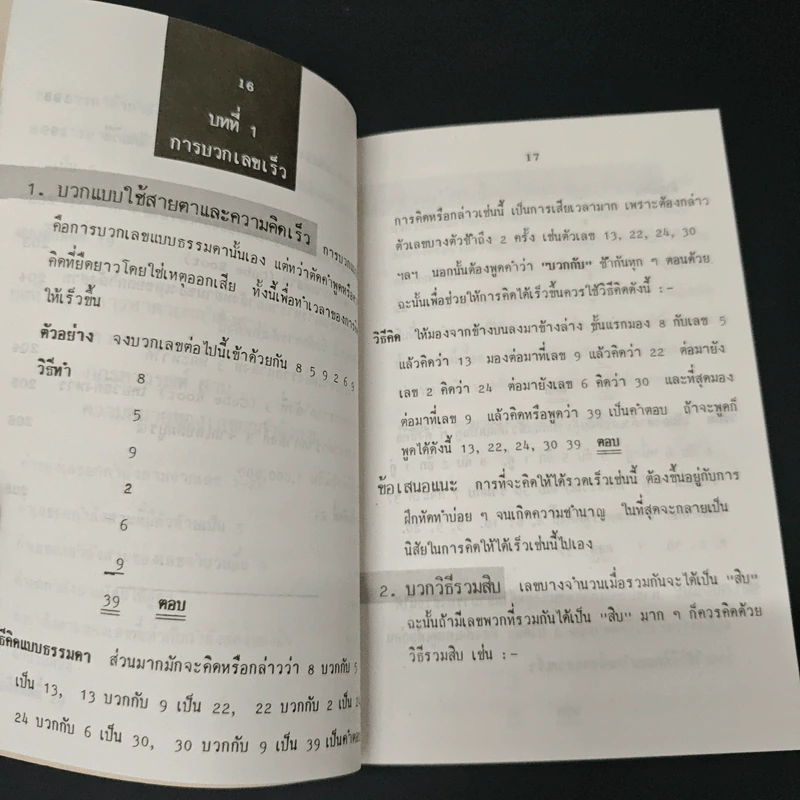 16
บทที่ 1
การบวกเลขเร็ว
1. บวกแบบใช้สายตาและความคิดเร็ว
คือการบวกเลขแบบธรรมดานั้นเอง แต่ทว่าตัดคำพูดหรือ
คิดที่ยืดยาวโดยใช่เหตุออกเสีย ทั้งนี้เพื่อทำเวลาของการ
ให้เร็วขึ้น
ตัวอย่าง จงบวกเลขต่อไปนี้เข้าด้วยกัน 8 5 9 2 6 9
วิธีทำ 8
5
9
2
6
9
39 ตอบ
วิธีคิดแบบธรรมดา ส่วนมากมักจะคิดหรือกล่าวว่า 8 บวกกับ 5
เป็น 13, 13 บวกกับ 9 เป็น 22, 22 บวกกับ 2 เป็น
24 บวกกับ 6 เป็น 30, 30 บวกกับ 9 เป็น 39
17
การคิดหรือกล่าวเช่นนี้ เป็นการเสียเวลามาก เพราะต้องกล่าว
ตัวเลขบางตัวซ้ำถึง 2 ครั้ง เช่นตัวเลข 13, 22, 24, 30
ฯลฯ นอกนั้นต้องพูดคำว่า "บวกกับ" ซ้ำกันทุก ๆ ตอนด้วย
ฉะนั้นเพื่อช่วยให้การคิดได้เร็วขึ้นควรใช้วิธีคิดดังนี้ :-
วิธีคิด ให้มองจากข้างบนลงมาข้างล่าง ขั้นแรกมอง 8 กับเลข 5
แล้วคิดว่า 13 มองต่อมาที่เลข 9 แล้วคิดว่า 22 ต่อมายัง
เลข 2 คิดว่า 24 ต่อมายังเลข 6 คิดว่า 30 และที่สุดมอง
ต่อมาที่เลข 9 แล้วคิดหรือพูดว่า 39 เป็นคำตอบ ถ้าจะพูดก็
พูดได้ดังนี้ 13, 22, 24, 30 39 ตอบ
ข้อเสนอแนะ การที่จะคิดให้ได้รวดเร็วเช่นนี้ ต้องขึ้นอยู่กับการ
ฝึกหัดทำบ่อย ๆ จนเกิดความชำนาญ ในที่สุดจะกลายเป็น
นิสัยในการคิดให้ได้เร็วเช่นนี้ไปเอง
2. บวกวิธีรวมสิบ เลขบางจำนวนเมื่อรวมกันจะได้เป็น "สิบ"
ฉะนั้นถ้ามีเลขพวกที่รวมกันได้เป็น "สิบ" มาก ๆ ก็ควรคิดด้วย
วิธีรวมสิบ เช่น :-